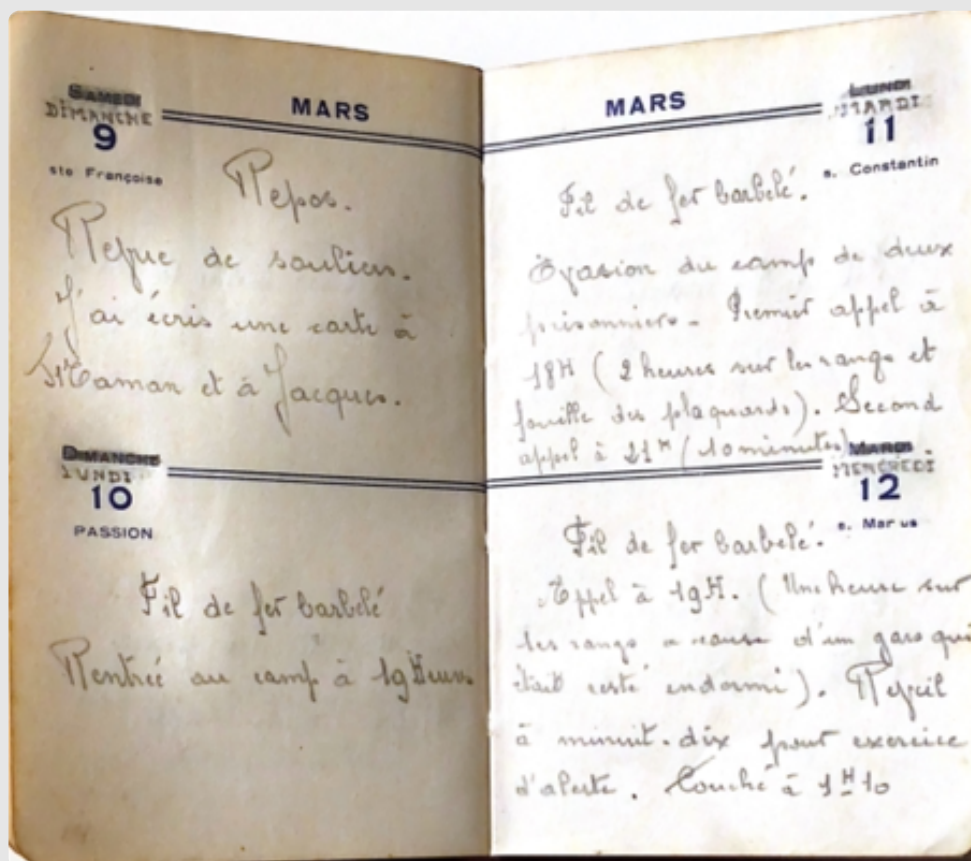 MARS
SAMEDI
DIMANCHE
9
ste Françoise
Repos.
Revue de souliers.
J'ai écris une carte à
Maman et à Jacques.
DIMANCHE
LUNDI
10
PASSION
Fil de fer barbelé
Rentrée au camp à 19 Heures
MARS
LUNDI
MARDI
11
s. Constantin
Fil de fer barbelé.
Évasion du camp de deux
prisonniers. Premier appel à
18H (2 heures sur les rangs et
fouille des plaquards). Second
appel à 21H (10 minutes).
MARDI
MERCREDI
12
s. Marius
Fil de fer barbelé.
Appel à 19H. (Une heure sur
les rangs a cause d'un gars qui
était resté endormi). Réveil
à minuit-dix pour exercice
d'alerte. Couché à 1H10